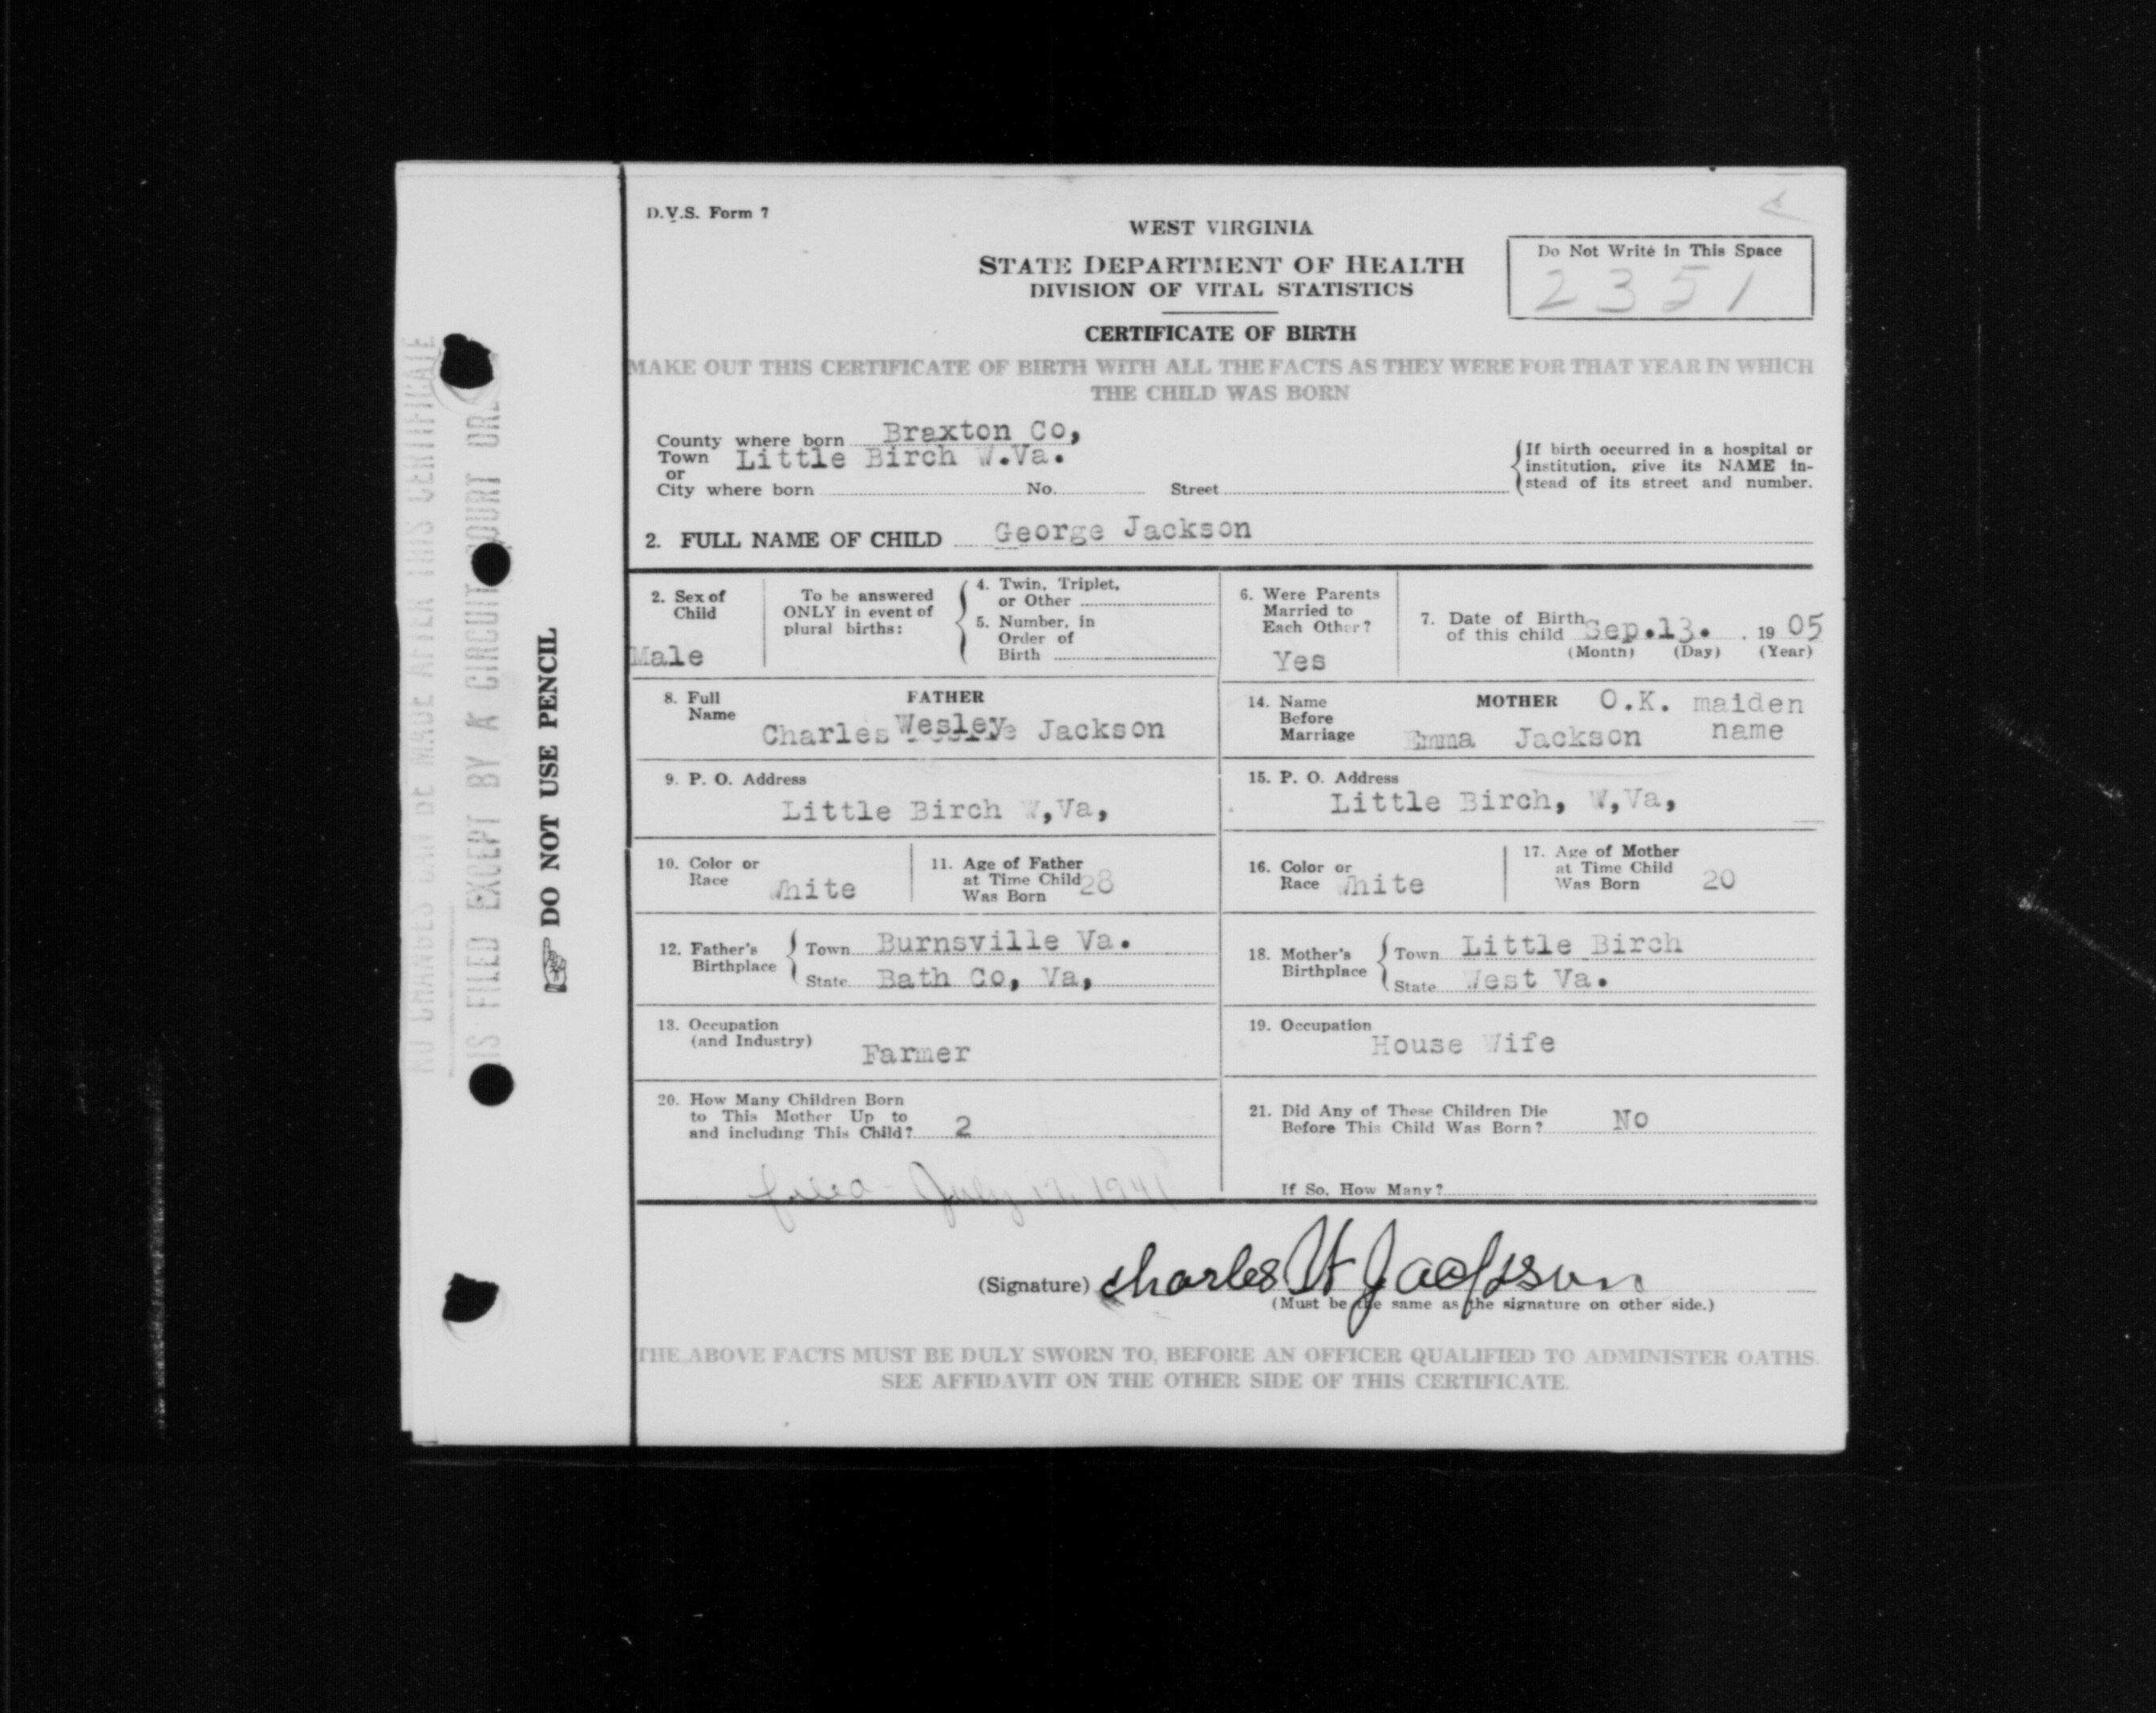 D.V.S. Form 7
WEST VIRGINIA
STATE DEPARTMENT OF HEALTH
DIVISION OF VITAL STATISTICS
Do Not Write in This Space
2351
CERTIFICATE OF BIRTH
MAKE OUT THIS CERTIFICATE OF BIRTH WITH ALL THE FACTS AS THEY WERE FOR THAT YEAR IN WHICH
THE CHILD WAS BORN
County where born Braxton Co,
Town Little Birch W.Va.
or
City where born No. Street
If birth occurred in a hospital or
institution, give its NAME in-
stead of its street and number.
2. FULL NAME OF CHILD George Jackson
2. Sex of
Child
Male
To be answered
ONLY in event of
plural births:
4. Twin, Triplet,
or Other
5. Number, in
Order of
Birth
6. Were Parents
Married to
Each Other?
Yes
7. Date of Birth
of this child Sep.13. , 19 05
(Month) (Day) (Year)
8. Full
Name
FATHER
Charles Wesley Jackson
14. Name
Before
Marriage
MOTHER O.K. maiden
name
Emma Jackson
9. P. O. Address
Little Birch W,Va,
15. P. O. Address
Little Birch, W,Va,
10. Color or
Race White
11. Age of Father
at Time Child
Was Born 28
16. Color or
Race White
17. Age of Mother
at Time Child
Was Born 20
12. Father's
Birthplace
Town Burnsville Va.
State Bath Co, Va,
18. Mother's
Birthplace
Town Little Birch
State West Va.
13. Occupation
(and Industry)
Farmer
19. Occupation
House Wife
20. How Many Children Born
to This Mother Up to
and including This Child? 2
21. Did Any of These Children Die
Before This Child Was Born? No
If So, How Many?
filed - July 17, 1941
(Signature) Charles W Jackson
(Must be the same as the signature on other side.)
THE ABOVE FACTS MUST BE DULY SWORN TO, BEFORE AN OFFICER QUALIFIED TO ADMINISTER OATHS.
SEE AFFIDAVIT ON THE OTHER SIDE OF THIS CERTIFICATE.
DO NOT USE PENCIL
NO CHANGES CAN BE MADE AFTER THIS CERTIFICATE
IS FILED EXCEPT BY A CIRCUIT COURT